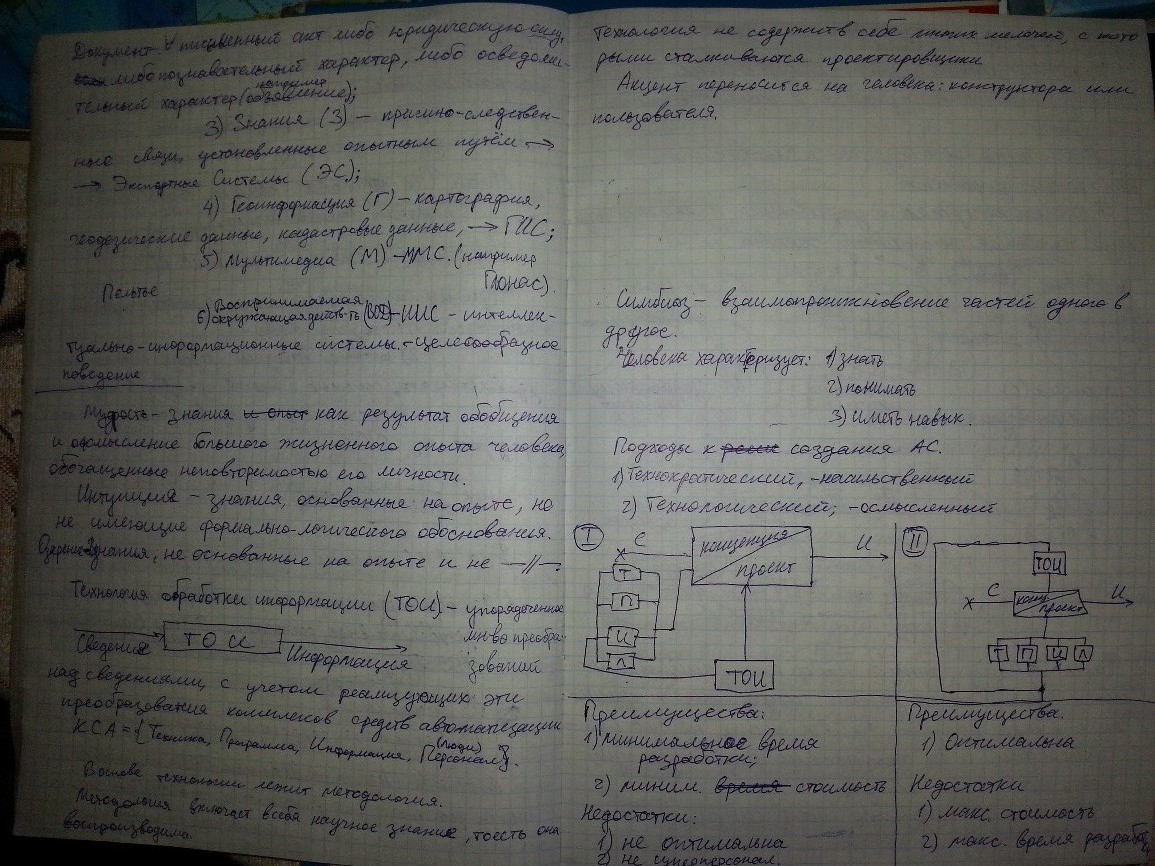 Документ - письменный акт либо юридическую силу,
либо познавательный характер, либо осведоми-
тельный характер (например объявление);
3) Знания (З) – причино-следствен-
ные связи, установленные опытным путём →
→ Экспортные Системы (ЭС);
4) Геоинформация (Г) – картография,
геодезические данные, кадастровые данные, → ГИС;
5) Мультимедиа (М) – ММС. (например
Глонас).
Пельтье
6) Воспринимаемая
окружающая действ-ть (ВОД) – ИИС – интеллек-
туально-информационные системы. - целесообразное
поведение
Мудрость - знания и опыт как результат обобщения
и осмысление большого жизненного опыта человека,
обогащенные неповторимостью его личности.
Интуиция – знания, основанные на опыте, но
не имеющие формально-логического обоснования.
Знания, не основанные на опыте и не —//—.
Технология обработки информации (ТОИ) – упорядоченное
мн-во преобра-
Сведения ТОИ Информация
зований
над сведениями, с учетом реализующих эти
преобразования комплексов средств автоматизации
КСА = {Техника, Программа, Информация, Персонал (люди)}.
В основе технологии лежит методология.
Методология включает в себя научное знание, то есть она
воспроизводима.
Технология не содержит в себе многих мелочей, с кото
рыми сталкиваются проектировщики
Акцент переносится на человека: конструктора или
пользователя.
Симбиоз – взаимопроникновение частей одного в
другое.
Человека характеризует: 1) знать
2) понимать
3) иметь навык.
Подходы к создания АС.
1) Технократический, - насильственный
2) Технологический; - осмысленный
I
С
концепция
проект
И
Т
П
И
Л
ТОИ
II
ТОИ
С
конц.
проект
И
Т П И Л
Преимущества:
1) минимальное время
разработки;
2) миним. время стоимость
Недостатки:
1) не оптимальна
2) не суперперсонал.
Преимущества.
1) Оптимальна
Недостатки
1) макс. стоимость
2) макс. время разработ